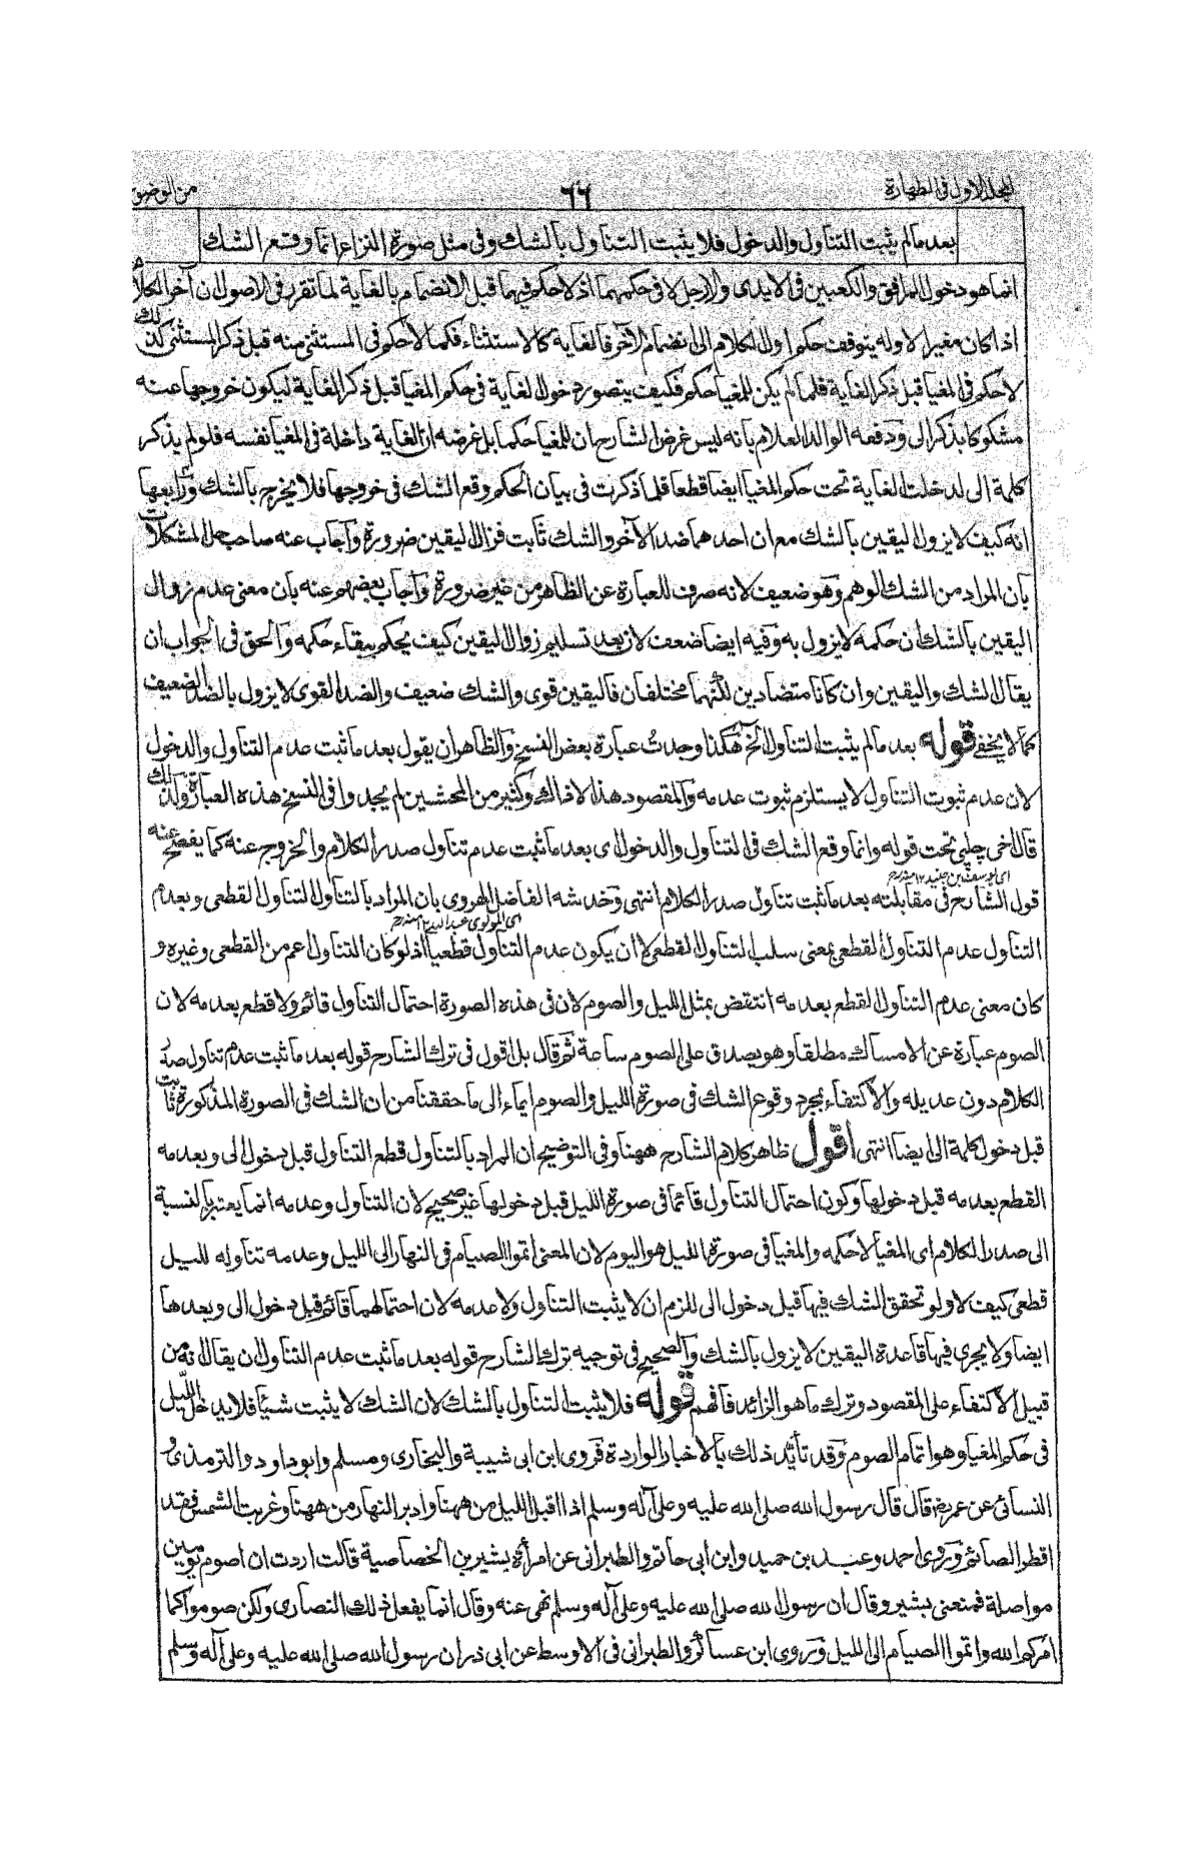 المجلد الاول فى الطهارة
٦٦
من الوضوء
بعد ما لم يثبت التناول والدخول فلا يثبت التناول بالشك وفى مثل صورة النزاع انما وقع الشك
انما هو دخول المرافق والكعبين فى الايدى والارجل لا فى حكمهما اذ لا حكم فيهما قبل الانضمام بالغاية لما تقرر فى الاصول ان آخر الكلام
اذا كان مغيرا لاوله يتوقف حكم اول الكلام الى انضمام الآخر فالغاية كالاستثناء فكما لا حكم فى المستثنى منه قبل ذكر المستثنى كذلك
لا حكم فى المغيا قبل ذكر الغاية فلما لم يكن للمغيا حكم فكيف يتصور دخول الغاية فى حكم المغيا قبل ذكر الغاية ليكون خروجها عنه
مشكوكا بذكر الى ودفعه الوالد العلام بانه ليس غرض الشارح ان للمغيا حكما بل غرضه ان الغاية داخلة فى المغيا نفسه فلو لم يذكر
كلمة الى لدخلت الغاية تحت حكم المغيا ايضا قطعا فلما ذكرت فى بيان الحكم وقع الشك فى خروجها فلا يخرج بالشك ورابعها
انه كيف لا يزول اليقين بالشك مع ان احدهما ضد الآخر والشك ثابت فزال اليقين ضرورة واجاب عنه صاحب حل المشكلات
بان المراد من الشك الوهم وهو ضعيف لانه صرف للعبارة عن الظاهر من غير ضرورة واجاب بعضهم عنه بان معنى عدم زوال
اليقين بالشك ان حكمه لا يزول به وفيه ايضا ضعف لان بعد تسليم زوال اليقين كيف يحكم ببقاء حكمه والحق فى الجواب ان
يقال الشك واليقين وان كانا متضادين لكنهما مختلفان فاليقين قوى والشك ضعيف والضد القوى لا يزول بالضد الضعيف
كما لا يخفى قوله بعد ما لم يثبت التناول الخ هكذا وجدت عبارة بعض النسخ والظاهر ان يقول بعد ما ثبت عدم التناول والدخول
لان عدم ثبوت التناول لا يستلزم ثبوت عدمه والمقصود هذا لا ذاك وكثير من المحشين لم يجدوا فى النسخ هذه العبارة ولذلك
قال اخى چلپى تحت قوله وانما وقع الشك فى التناول والدخول اى بعد ما ثبت عدم تناول صدر الكلام والخروج عنه كما يفصح عنه
اى يوسف بن جنيد ١٢ منه رح
قول الشارح فى مقابلته بعد ما ثبت تناول صدر الكلام انتهى وخدشه الفاضل الهروى بان المراد بالتناول التناول القطعى وبعدم
اى المولوى عبد الله ١٢ منه رح
التناول عدم التناول القطعى بمعنى سلب التناول القطعى لا ان يكون عدم التناول قطعيا اذ لو كان التناول اعم من القطعى وغيره و
كان معنى عدم التناول القطع بعدمه انتقض بمثل الليل والصوم لان فى هذه الصورة احتمال التناول قائم ولا قطع بعدمه لان
الصوم عبارة عن الامساك مطلقا وهو يصدق على الصوم ساعة ثم قال بل اقول فى ترك الشارح قوله بعد ما ثبت عدم تناول صدر
الكلام دون عديله والاكتفاء بمجرد وقوع الشك فى صورة الليل والصوم ايماء الى ما حققنا من ان الشك فى الصورة المذكورة ثابت
قبل دخول كلمة الى ايضا انتهى اقول ظاهر كلام الشارح ههنا وفى التوضيح ان المراد بالتناول قطع التناول قبل دخول الى وبعدمه
القطع بعدمه قبل دخولها وكون احتمال التناول قائما فى صورة الليل قبل دخولها غير صحيح لان التناول وعدمه انما يعتبر بالنسبة
الى صدر الكلام اى المغيا لا حكمه والمغيا فى صورة الليل هو اليوم لان المعنى اتموا الصيام فى النهار الى الليل وعدمه تناوله لليل
قطعى كيف لا ولو تحقق الشك فيها قبل دخول الى للزم ان لا يثبت التناول ولا عدمه لان احتمالهما قائم قبل دخول الى وبعدها
ايضا ولا يجرى فيها قاعدة اليقين لا يزول بالشك والصحيح فى توجيه ترك الشارح قوله بعد ما ثبت عدم التناول ان يقال انه من
قبيل الاكتفاء على المقصود وترك ما هو الزائد فافهم قوله فلا يثبت التناول بالشك لان الشك لا يثبت شيئا فلا يدخل الليل
فى حكم المغيا وهو اتمام الصوم وقد تأيد ذلك بالاخبار الواردة فروى ابن ابى شيبة والبخارى ومسلم وابو داود والترمذى و
النسائى عن عمر رض قال قال رسول الله صلى الله عليه وعلى آله وسلم اذا اقبل الليل من ههنا وادبر النهار من ههنا وغربت الشمس فقد
افطر الصائم وروى احمد وعبد بن حميد وابن ابى حاتم والطبرانى عن امرأة بشير بن الخصاصية قالت اردت ان اصوم يومين
مواصلة فمنعنى بشير وقال ان رسول الله صلى الله عليه وعلى آله وسلم نهى عنه وقال انما يفعل ذلك النصارى ولكن صوموا كما
امركم الله واتموا الصيام الى الليل وروى ابن عساكر والطبرانى فى الاوسط عن ابى ذر ان رسول الله صلى الله عليه وعلى آله وسلم